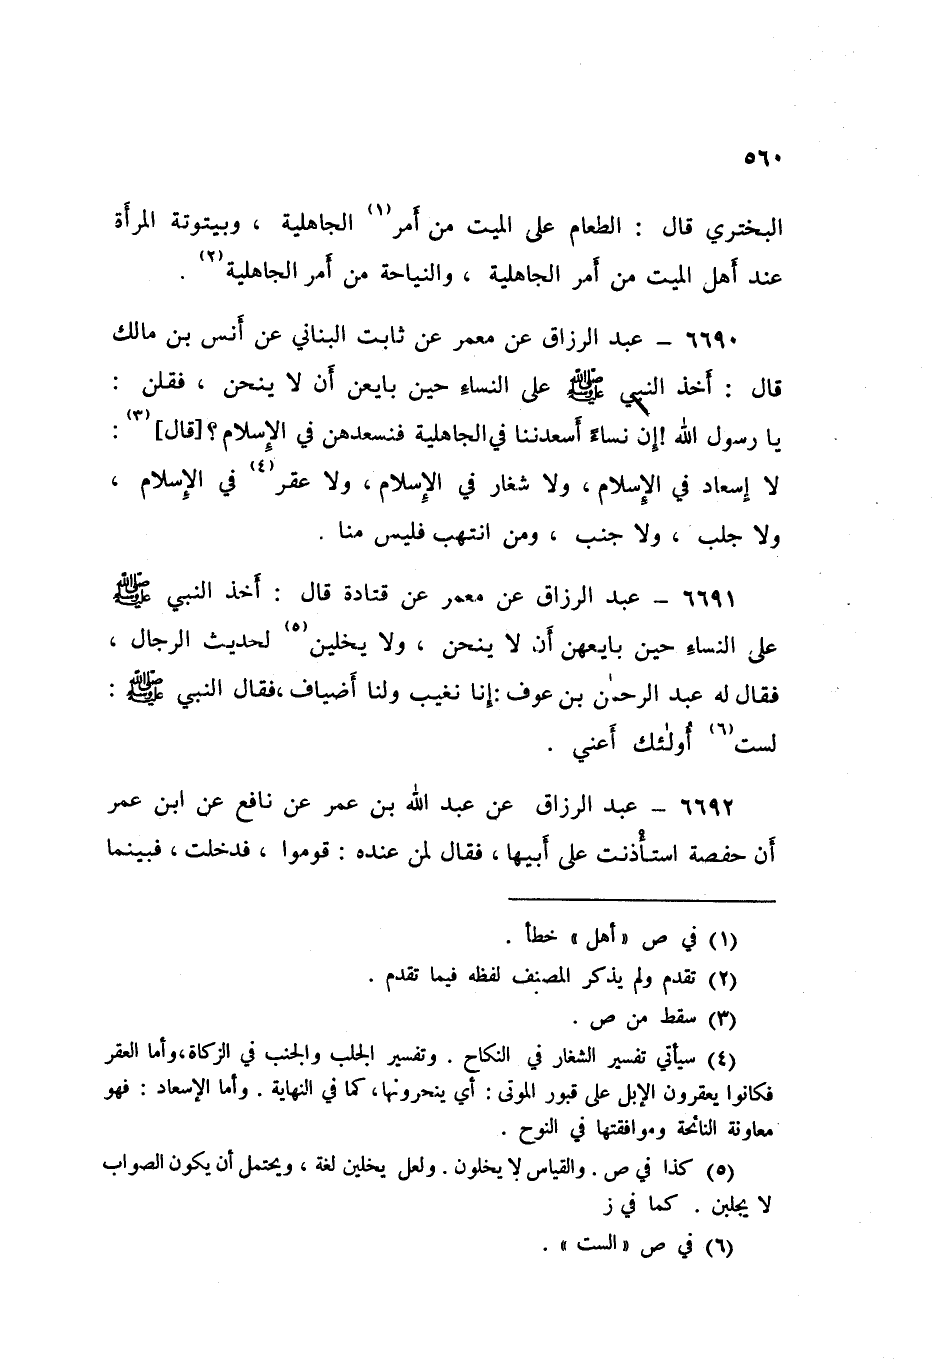 ٥٦٠
البختري قال : الطعام على الميت من أمر(١) الجاهلية ، وبيتوتة المرأة
عند أهل الميت من أمر الجاهلية ، والنياحة من أمر الجاهلية(٢) .
٦٦٩٠ – عبد الرزاق عن معمر عن ثابت البناني عن أنس بن مالك
قال : أخذ النبي ﷺ على النساء حين بايعن أن لا ينحن ، فقلن :
يا رسول الله !إن نساءً أسعدننا في الجاهلية فنسعدهن في الإسلام؟[قال](٣) :
لا إسعاد في الإسلام ، ولا شغار في الإسلام ، ولا عقر(٤) في الإسلام ،
ولا جلب ، ولا جنب ، ومن انتهب فليس منا .
٦٦٩١ – عبد الرزاق عن معمر عن قتادة قال : أخذ النبي ﷺ
على النساء حين بايعهن أن لا ينحن ، ولا يخلين(٥) لحديث الرجال ،
فقال له عبد الرحمٰن بن عوف :إنا نغيب ولنا أضياف ،فقال النبي ﷺ :
لست(٦) أُولٰئك أعني .
٦٦٩٢ – عبد الرزاق عن عبد الله بن عمر عن نافع عن ابن عمر
أن حفصة استأذنت على أبيها ، فقال لمن عنده : قوموا ، فدخلت ، فبينما
(١) في ص «أهل» خطأ .
(٢) تقدم ولم يذكر المصنف لفظه فيما تقدم .
(٣) سقط من ص .
(٤) سيأتي تفسير الشغار في النكاح . وتفسير الجلب والجنب في الزكاة،وأما العقر
فكانوا يعقرون الإبل على قبور الموتى : أي ينحرونها، كما في النهاية . وأما الإسعاد : فهو
معاونة النائحة وموافقتها في النوح .
(٥) كذا في ص . والقياس لا يخلون . ولعل يخلين لغة ، ويحتمل أن يكون الصواب
لا يجلبن . كما في ز
(٦) في ص «الست» .